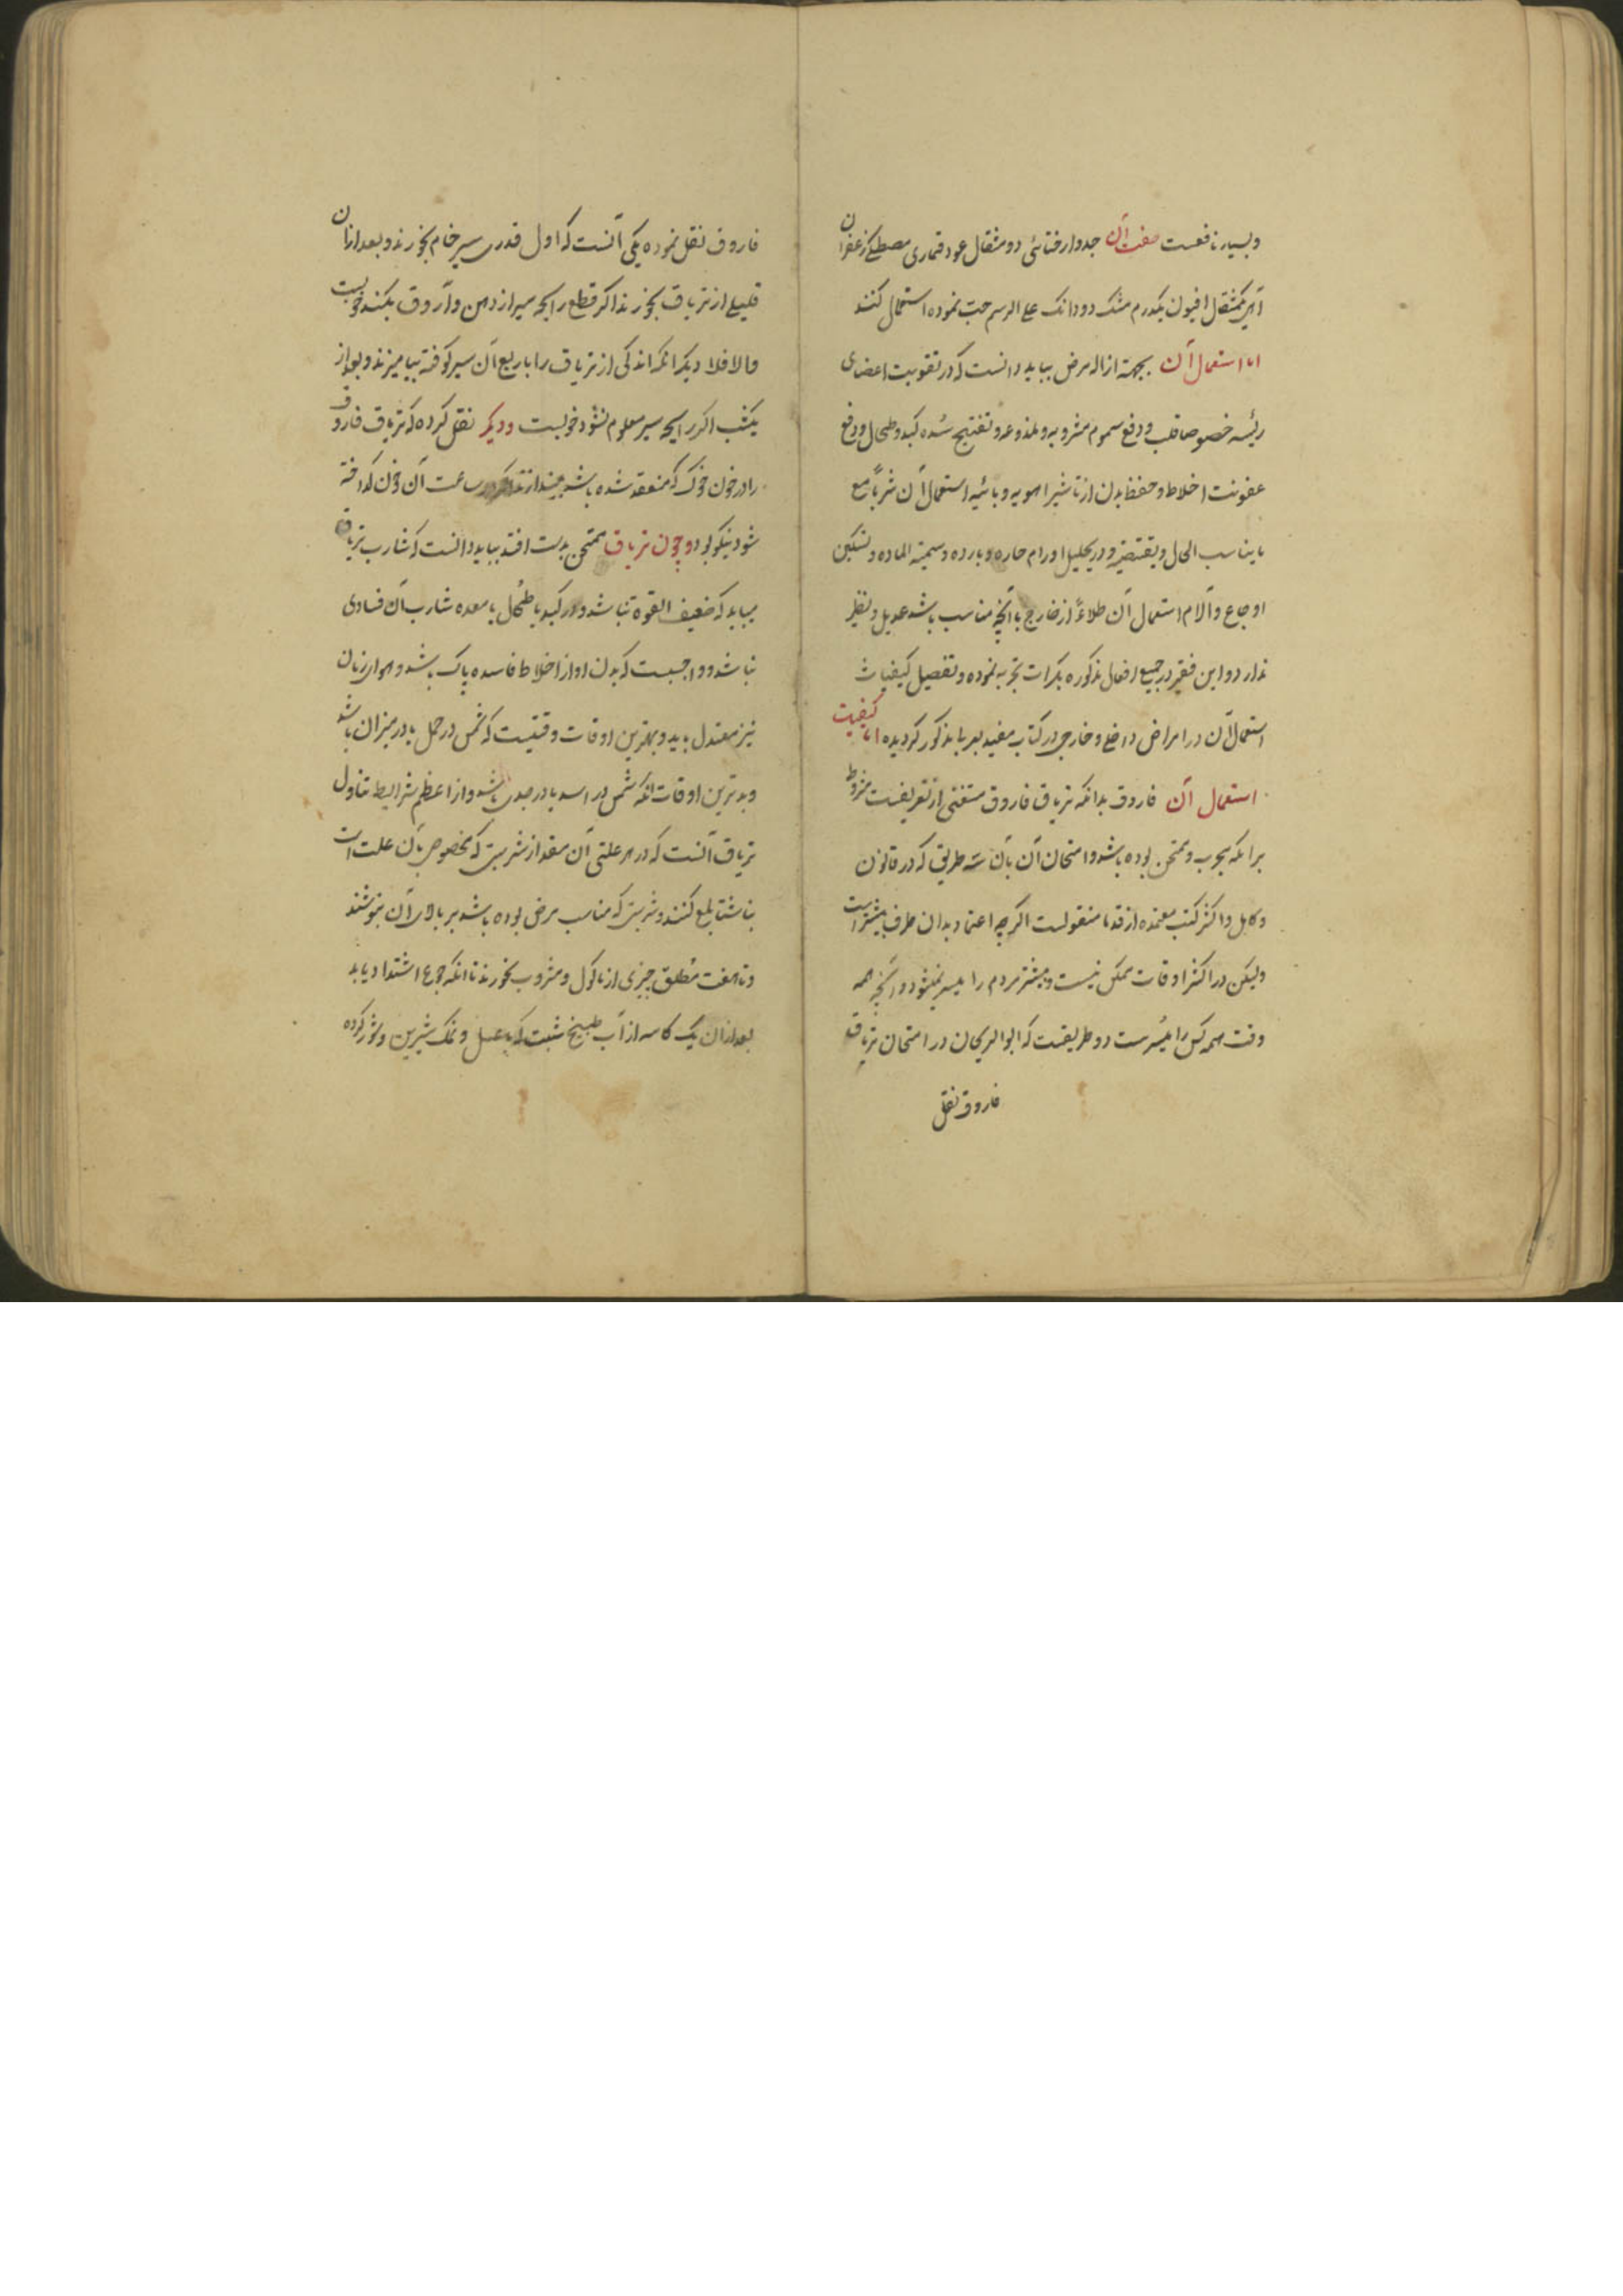 و بسیار نافعست صفت آن جدوار ختائی دو مثقال عود قماری مصطکی زعفران
از هر یک مثقال افیون یکدرم مشک دو دانک علی الرسم حب نموده استعمال کنند
اما استعمال آن بجهة ازاله مرض بباید دانست که در تقویت اعضای
رئیسه خصوصا قلب و دفع سموم مشروبه و ملذوعه و تفتیح سده کبد و طحال و دفع
عفونت اخلاط و حفظ بدن از تاثیر اهویه وبائیه استعمال آن شربا مع
ما یناسب الحال و یقتضیه و در تحلیل اورام حاره و بارده و سمیة الماده و تسکین
اوجاع و آلام استعمال آن طلاءً از خارج با آنچه مناسب باشد عدیل و نظیر
ندارد و این فقیر در جمیع افعال مذکوره بکرات تجربه نموده و تفصیل کیفیات
استعمال آن در امراض داخلی و خارجی در کتاب مفید مذکور گردیده اما کیفیت
استعمال آن فاروق بدانکه تریاق فاروق مستغنی از تعریفست مشروط
برانکه مجرب و ممتحن بوده باشد و امتحان آن بآن سه طریق که در قانون
و کامل و اکثر کتب معتمده از قدما منقولست اگرچه اعتماد بدان طرف بیشتر است
ولیکن در اکثر اوقات ممکن نیست و بیشتر مردم را میسر نمیشود و آنچه همه
وقت همه کس را میسرست دو طریقست که ابوالریحان در امتحان تریاق
فاروق نقل
فاروق نقل نموده یکی آنست که اول قدری سیر خام بخورند و بعد از آن
قلیلی از تریاق بخورند اگر قطع رایحه سیر از دهن و آروق بکند خوبست
والا فلا دیگر انکه اندکی از تریاق را با ربع آن سیر کوفته بیامیزند و بعد از
یکشب اگر رایحه سیر معلوم نشود خوبست و دیگر نقل کرده که تریاق فاروق
را در خون خوک که منعقد شده باشد بیندازند اگر در ساعت آن خون گداخته
شود نیکو بود و چون تریاق ممتحن بدست افتد بباید دانست که شارب تریاق
میباید که ضعیف القوة نباشد و در کبد یا طحال یا معده شارب آن فسادی
نباشد و واجبست که بدن او از اخلاط فاسده پاک باشد و هوای زمان
نیز معتدل باید و بهترین اوقات وقتیست که شمس در حمل یا در میزان باشد
و بدترین اوقات انکه شمس در اسد یا در جدی باشد و از اعظم شرایط تناول
تریاق آنست که در هر علتی آن مقدار شربتی که مخصوص بآن علت است
ناشتا بلع کنند و شربتی که مناسب مرض بوده باشد بر بالای آن بنوشند
و تا هفت مطلق چیزی از ماکول و مشروب نخورند تا انکه جوع اشتداد یابد
بعد از آن یک کاسه از آب طبیخ شبت که با عسل و نمک شیرین و شور کرده